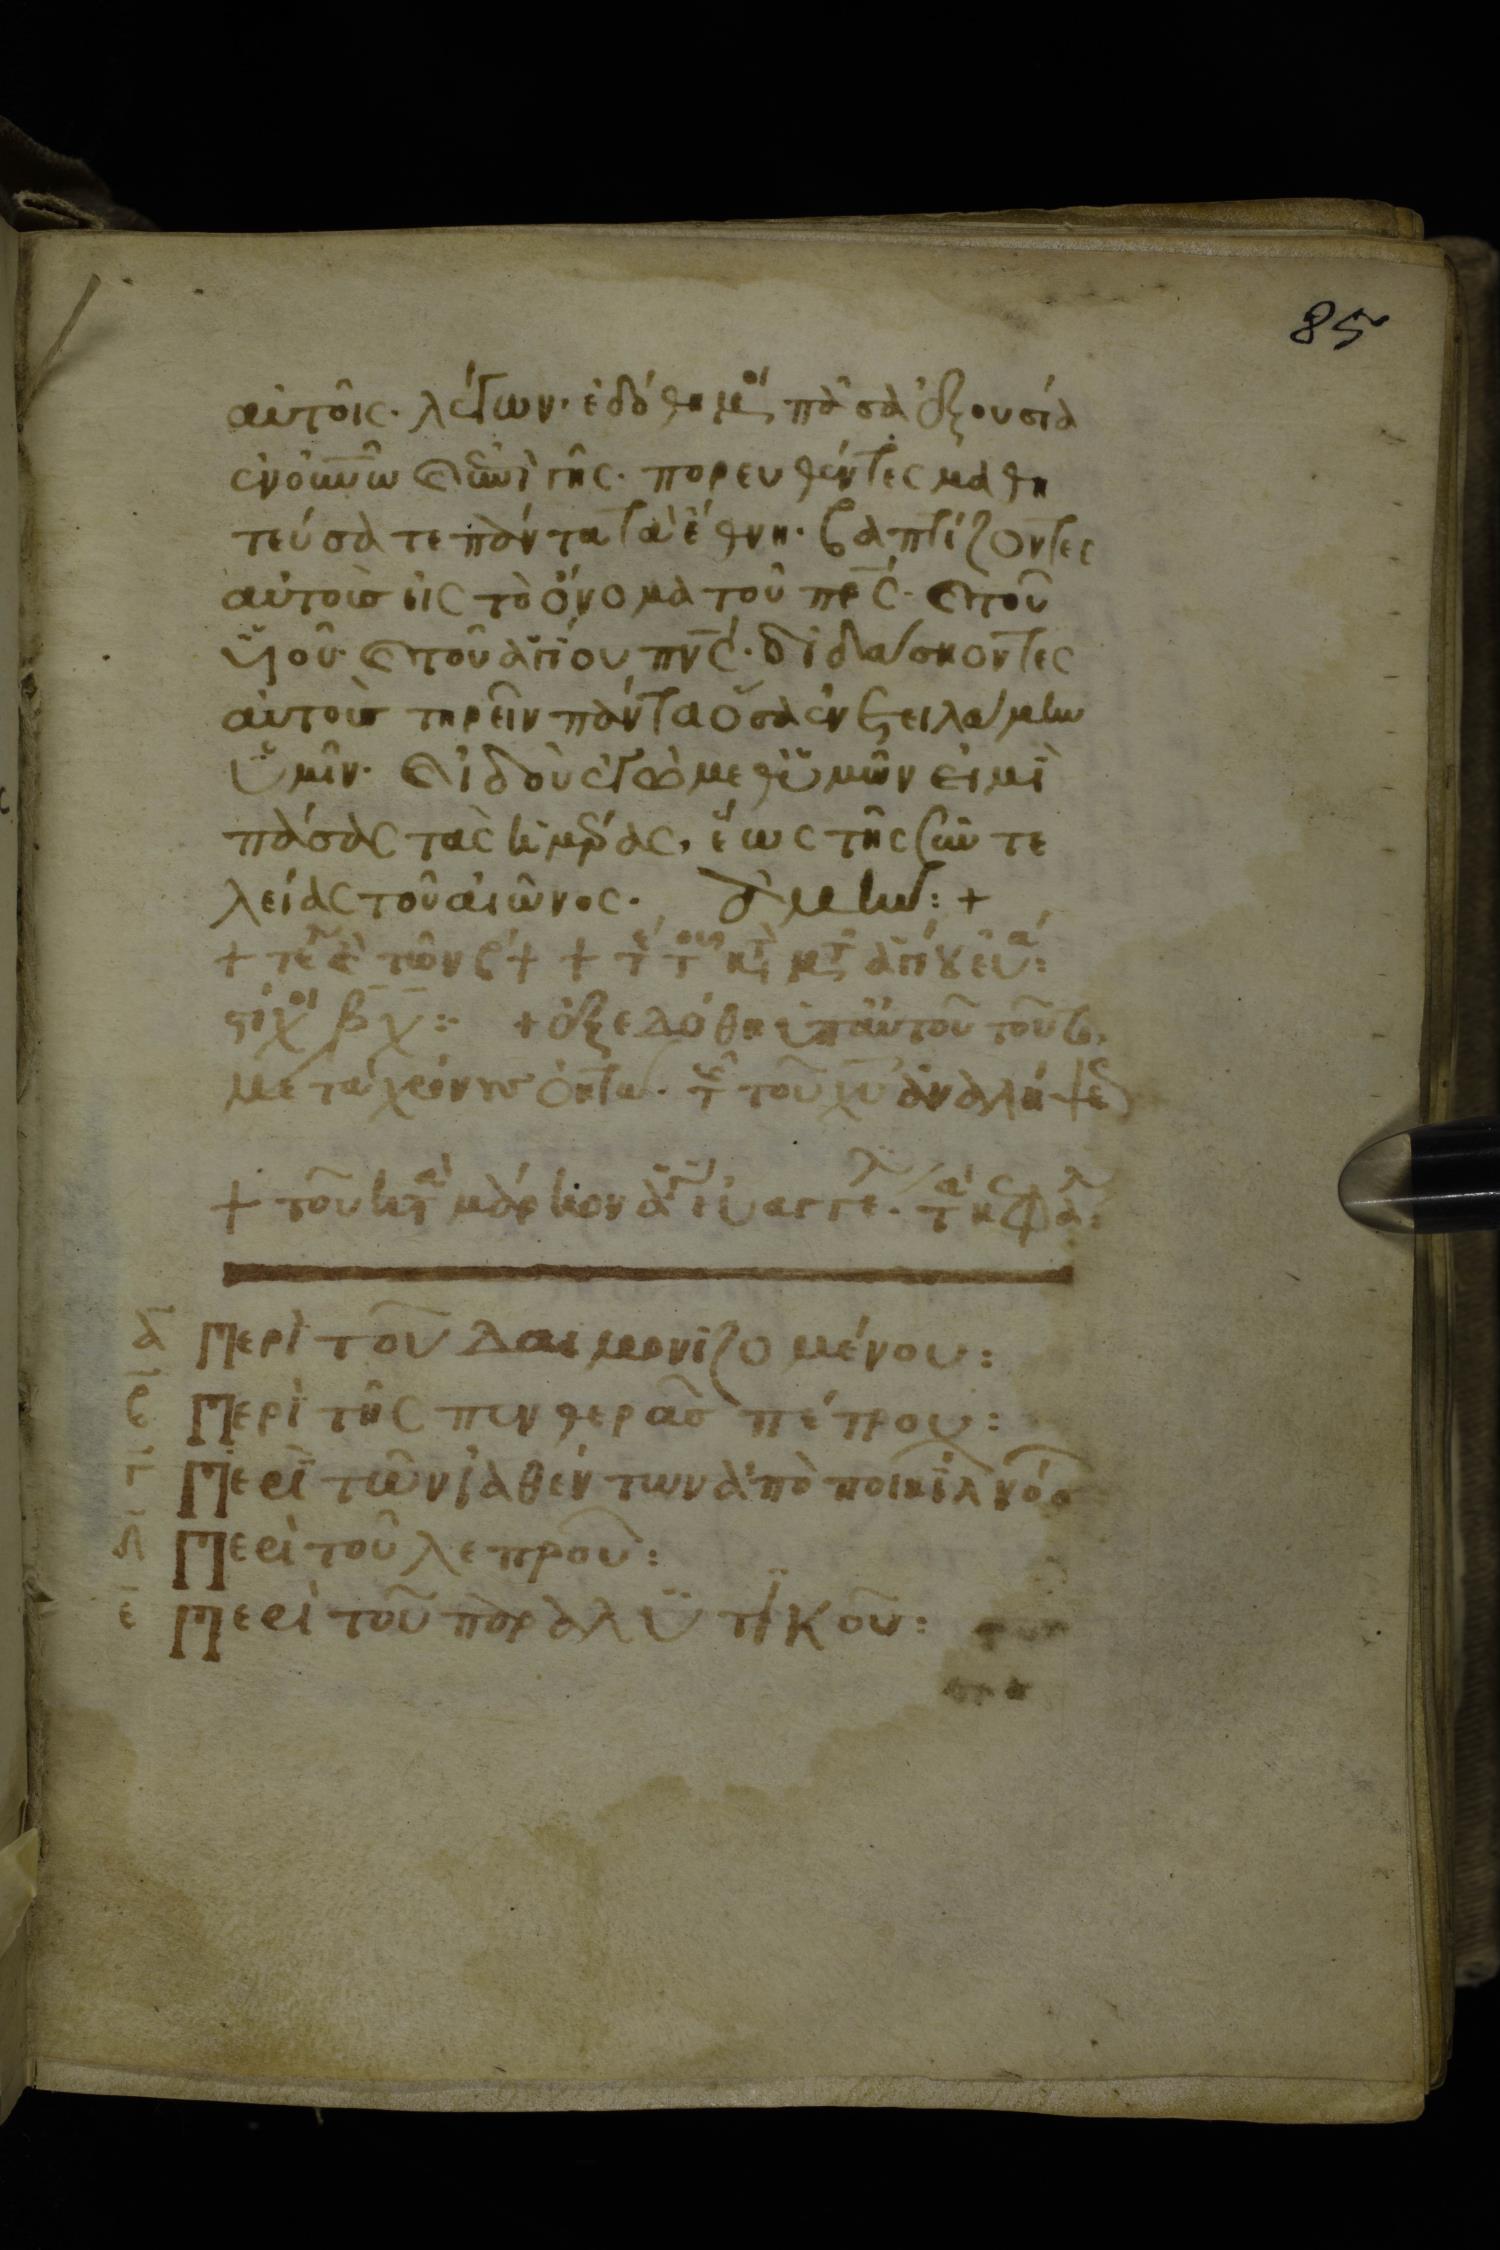 85
αὐτοῖς· λέγων· ἐδόθη μοί πᾶσα ἐξουσία
ἐν οὐνῶ καὶ ἐπὶ γῆς· πορευθέντες μαθη
τεύσατε πάντα τὰ ἔθνη· βαπτίζοντες
αὐτοὺσ εἰς τὸ ὄνομα τοῦ πρς· καὶ τοῦ
ὑϊοῦ· καὶ τοῦ ἁγίου πνς· διδάσκοντες
αὐτοὺσ τηρεῖν πάντα ὅσα ἐνετειλάμην
ὑμῖν· καὶ ἰδοὺ ἐγὼ μεθ ὑμῶν εἰμὶ
πάσας τὰς ἡμέρας, ἕως τῆς συντε
λείας τοῦ αἰῶνος· ἀμήν: +
+ τ τ κτ μτ ἁγίου ευα:
στίχοι βχ: + ἐξεδόθη ὑπ αὐτοῦ τοῦ
μετὰ χρόνουσ ὀκτω· τῆς τοῦ χυ ἀναλήψε
+ τοῦ κατὰ μάρκον ἁγίου εὐαγγε· τὰ κεφαλ:
α Περὶ τοῦ δαιμονιζομένου:
β Περὶ τῆς πενθερᾶσ πέτρου:
γ Περὶ τῶν ἰαθέντων ἀπὸ ποικίλ νόσ
δ Περὶ τοῦ λεπροῦ:
ε Περὶ τοῦ παραλϋτικοῦ: